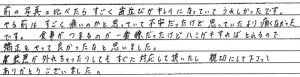 前の写真と比べたらすごく歯並びがキレイになっていてうれしかったです。
やる前はすごく痛いのかと思っていて不安だったけど思っていたより痛くなかった
です。食事がつまるのが一番嫌だったけどハミガキすればとれるので
矯正をやって良かったなと思いました。
装置が外れちゃったりしてもすぐに対応して頂いたし親切にして下さって
ありがとうございました。